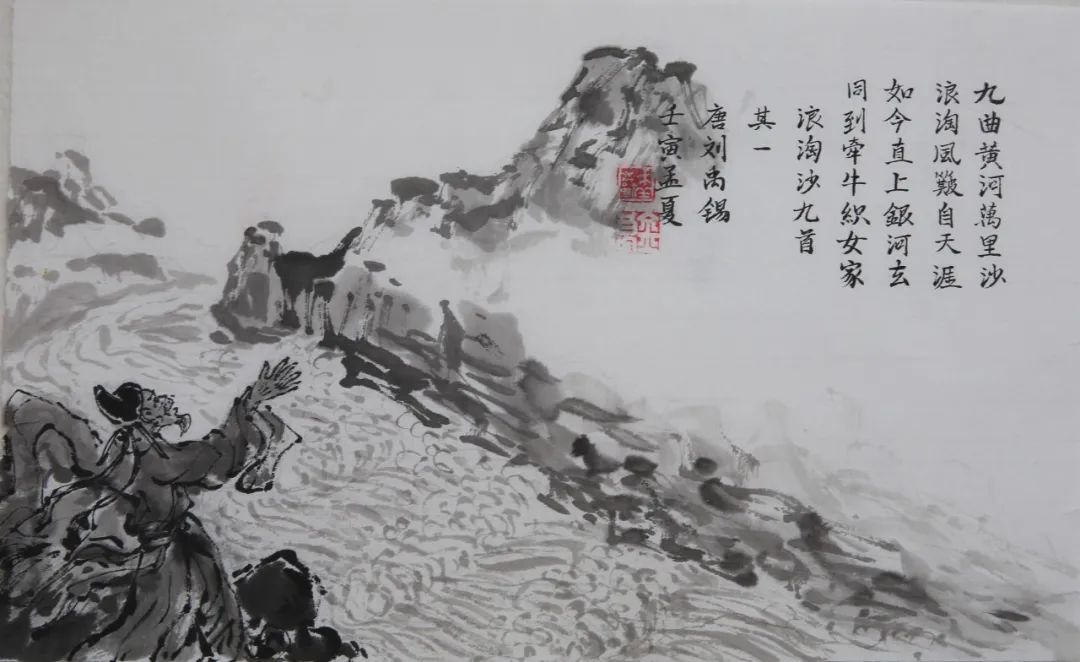 九曲黄河萬里沙
浪淘風簸自天涯
如今直上銀河去
同到牽牛織女家
浪淘沙九首
其一
唐刘禹锡
壬寅孟夏